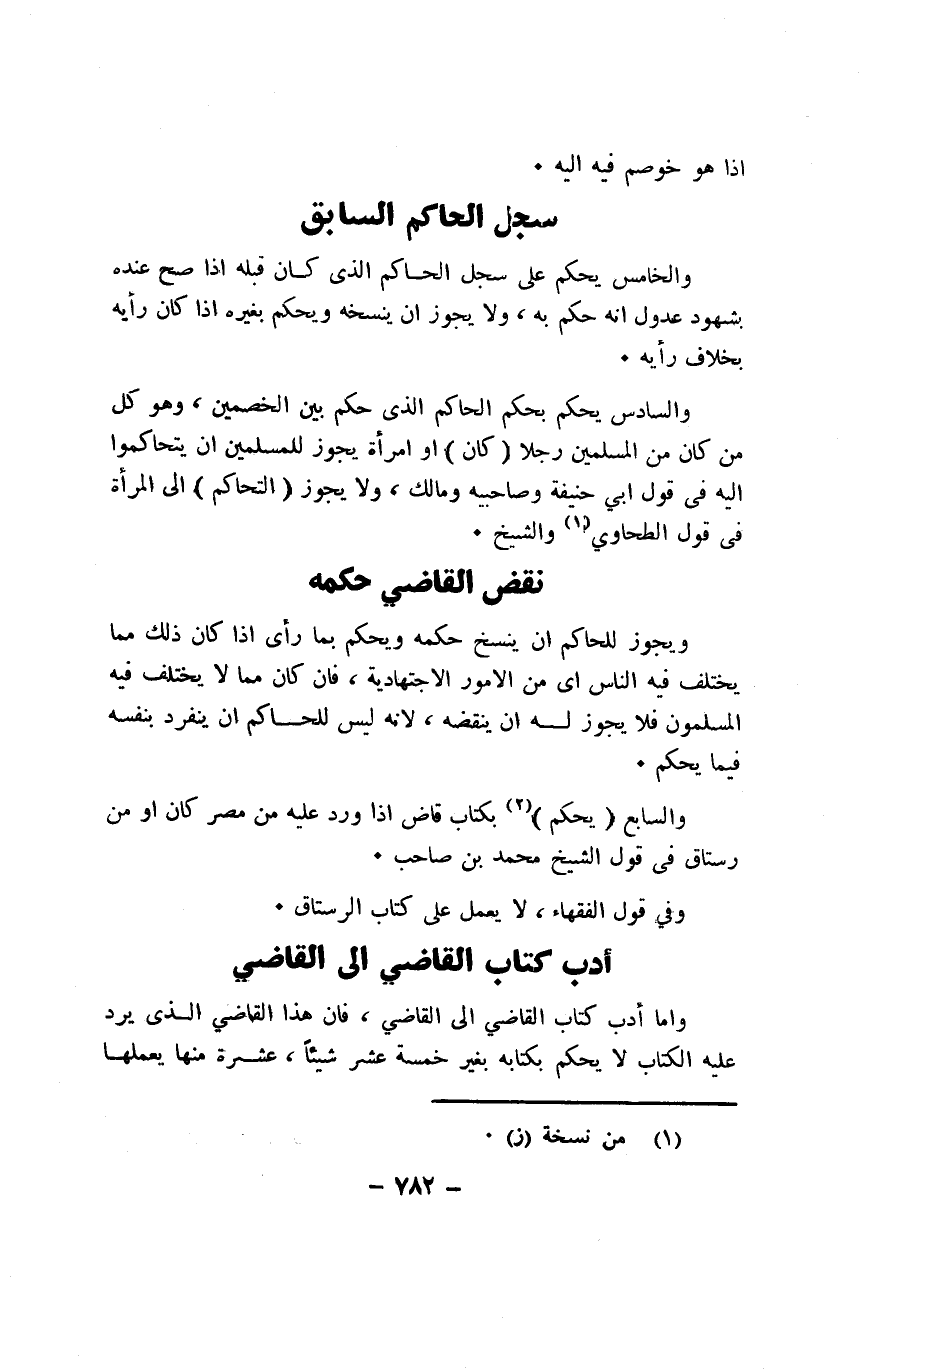 اذا هو خوصم فيه اليه •
سجل الحاكم السابق
والخامس يحكم على سجل الحاكم الذى كان قبله اذا صح عنده
بشهود عدول انه حكم به ، ولا يجوز ان ينسخه ويحكم بغيره اذا كان رأيه
بخلاف رأيه •
والسادس يحكم بحكم الحاكم الذى حكم بين الخصمين ، وهو كل
من كان من المسلمين رجلا ( كان ) او امرأة يجوز للمسلمين ان يتحاكموا
اليه فى قول ابي حنيفة وصاحبيه ومالك ، ولا يجوز ( التحاكم ) الى المرأة
فى قول الطحاوي(١) والشيخ •
نقض القاضي حكمه
ويجوز للحاكم ان ينسخ حكمه ويحكم بما رأى اذا كان ذلك مما
يختلف فيه الناس اى من الامور الاجتهادية ، فان كان مما لا يختلف فيه
المسلمون فلا يجوز لــه ان ينقضه ، لانه ليس للحــاكم ان ينفرد بنفسه
فيما يحكم •
والسابع ( يحكم )(٢) بكتاب قاض اذا ورد عليه من مصر كان او من
رستاق فى قول الشيخ محمد بن صاحب •
وفي قول الفقهاء ، لا يعمل على كتاب الرستاق •
أدب كتاب القاضي الى القاضي
واما أدب كتاب القاضي الى القاضي ، فان هذا القاضي الـذى يرد
عليه الكتاب لا يحكم بكتابه بغير خمسة عشر شيئاً ، عشـرة منها يعملهـا
(١) من نسخة (ز) •
– ٧٨٢ –